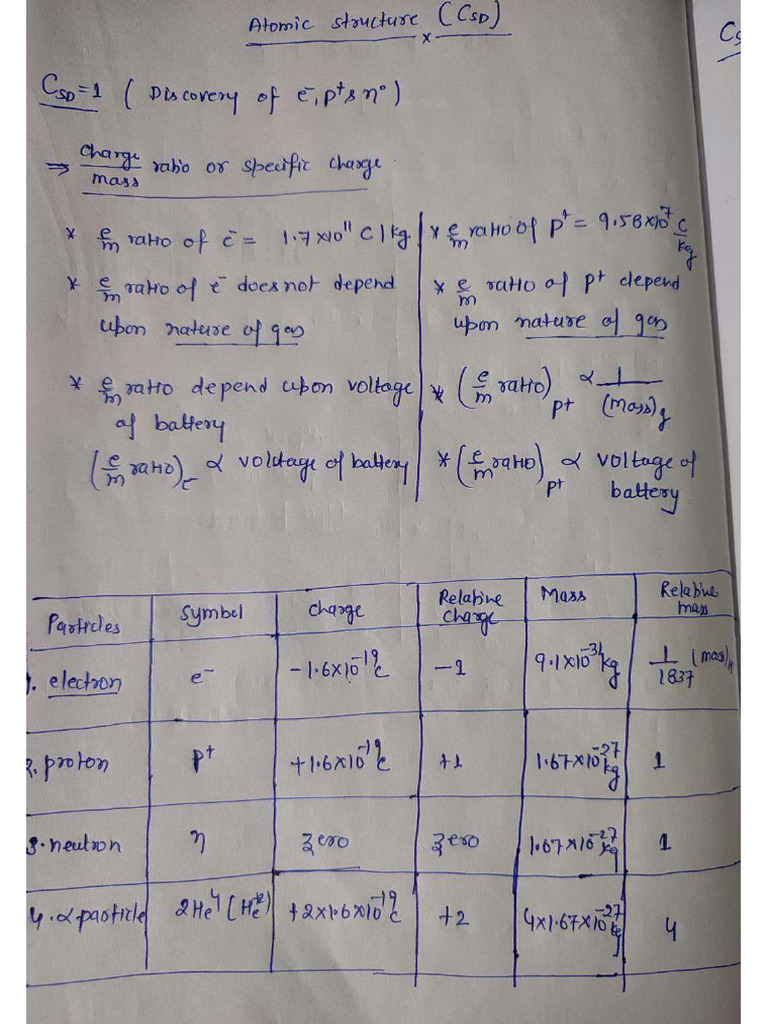 Atomic structure (CSD)
x
CSD=1 ( Discovery of e⁻, p⁺ & n⁰ )
⇒ charge/mass ratio or specific charge
* e/m ratio of e⁻ = 1.7×10¹¹ C/kg
* e/m ratio of e⁻ does not depend
upon nature of gas
* e/m ratio depend upon voltage
of battery
(e/m ratio)e⁻ ∝ voldtage of battery
* e/m ratio of p⁺ = 9.58×10⁷ C/kg
* e/m ratio of p⁺ depend
upon nature of gas
* (e/m ratio)p⁺ ∝ 1/(mass)g
* (e/m ratio)p⁺ ∝ voltage of
battery
Particles | Symbol | charge | Relative charge | Mass | Relative mass
1. electron | e⁻ | −1.6×10⁻¹⁹ C | −1 | 9.1×10⁻³¹ kg | 1/1837 (mass)H
2. proton | p⁺ | +1.6×10⁻¹⁹ C | +1 | 1.67×10⁻²⁷ kg | 1
3. neutron | η | zero | zero | 1.67×10⁻²⁷ kg | 1
4. α particle | 2He⁴ (He⁺²) | +2×1.6×10⁻¹⁹ C | +2 | 4×1.67×10⁻²⁷ kg | 4